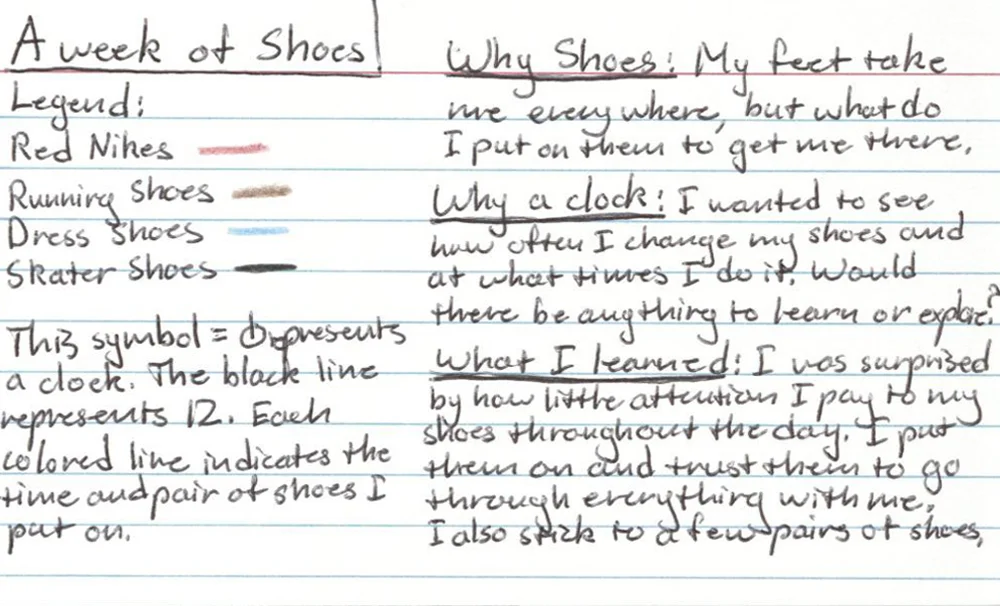 A week of Shoes
Legend:
Red Nikes
Running Shoes
Dress Shoes
Skater Shoes
This symbol = represents
a clock. The black line
represents 12. Each
colored line indicates the
time and pair of shoes I
put on.
Why Shoes: My feet take
me everywhere, but what do
I put on them to get me there.
Why a clock: I wanted to see
how often I change my shoes and
at what times I do it. Would
there be anything to learn or explore?
What I learned: I was surprised
by how little attention I pay to my
shoes throughout the day. I put
them on and trust them to go
through everything with me.
I also stick to a few pairs of shoes.